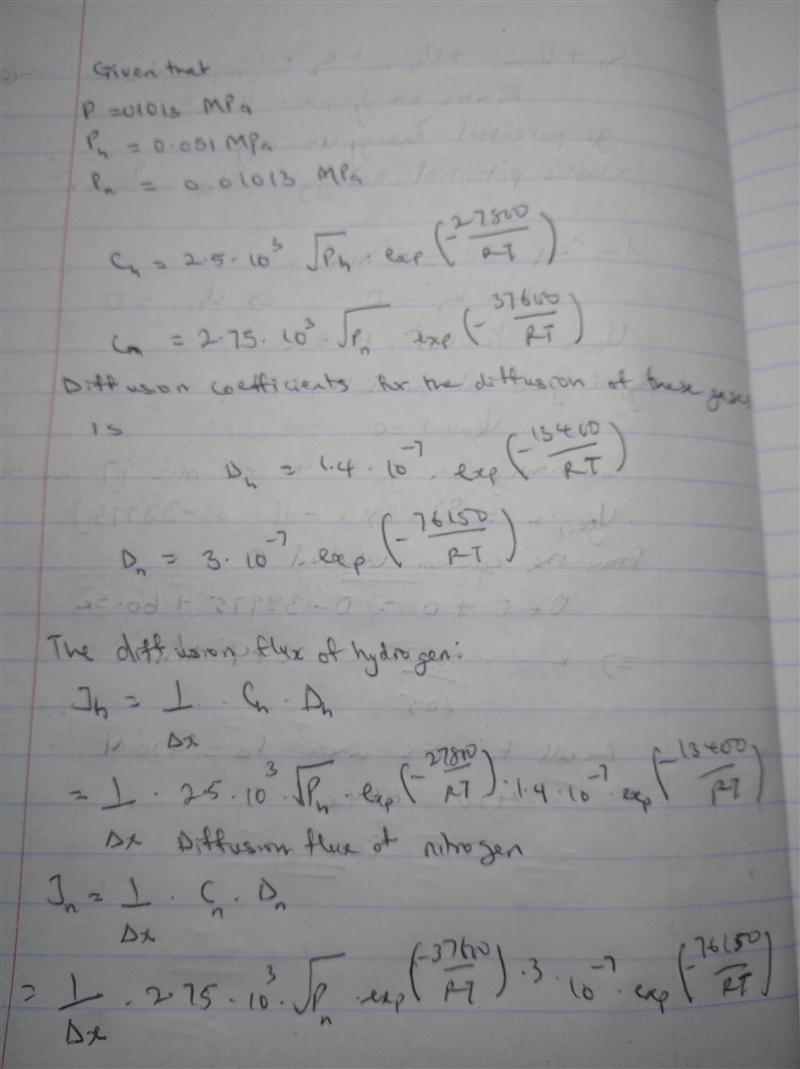 Given that
P = 01013 MPa
Ph = 0.051 MPa
Pn = 0.01013 MPa
Ch = 2.5 · 10³ √Ph · exp(-27800/RT)
Cn = 2.75 · 10³ √Pn exp(-37600/RT)
Diffusion coefficients for the diffusion of these gases
is
Dh = 1.4 · 10⁻⁷ · exp(-13400/RT)
Dn = 3 · 10⁻⁷ exp(-76150/RT)
The diffusion flux of hydrogen:
Jh = 1/Δx · Ch · Dh
= 1/Δx · 25 · 10³ √Ph · exp(-27800/RT) · 1.4 · 10⁻⁷ exp(-13400/RT)
Diffusion flux of nitrogen
Jn = 1/Δx · Cn · Dn
= 1/Δx · 275 · 10³ · √Pn · exp(-37600/RT) · 3 · 10⁻⁷ · exp(-76150/RT)